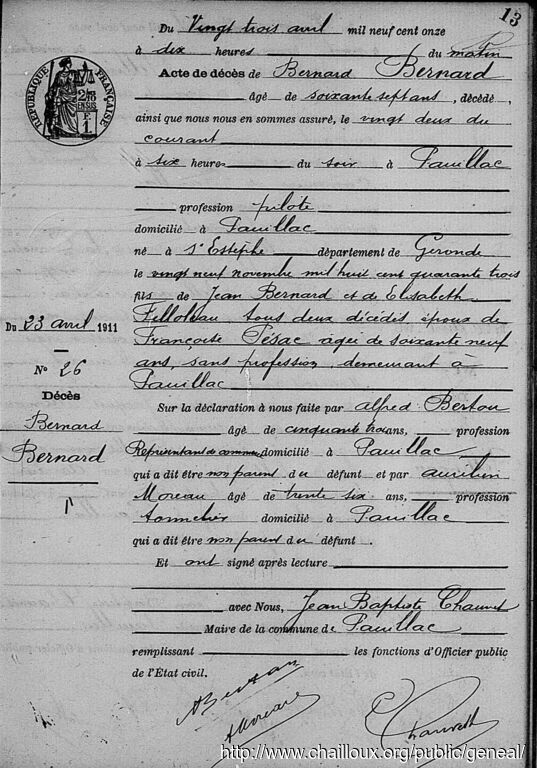 13
Du Vingt trois avril mil neuf cent onze
à dix heures du matin
Acte de décès de Bernard Bernard
âgé de soixante sept ans, décédé,
ainsi que nous nous en sommes assuré, le vingt deux du
courant
à six heures du soir à Pauillac
profession pilote
domicilié à Pauillac
né à St Estèphe département de Gironde
le vingt neuf novembre mil huit cent quarante trois
fils de Jean Bernard et de Elisabeth
Filloleau tous deux décédés, époux de
Françoise Pésac agée de soixante neuf
ans, sans profession, demeurant à
Pauillac
RÉPUBLIQUE FRANÇAISE
2/10 EN SUS
F. 1
Du 23 avril 1911
No 26
Décès
Bernard
Bernard
Sur la déclaration à nous faite par alfred Bertou
âgé de cinquante trois ans, profession
Représentant de commerce domicilié à Pauillac
qui a dit être non parent du défunt et par aurélien
Moreau âgé de trente six ans, profession
tonnelier domicilié à Pauillac
qui a dit être non parent du défunt.
Et ont signé après lecture
avec Nous, Jean Baptiste Chauvet
Maire de la commune de Pauillac
remplissant les fonctions d'Officier public
de l'État civil.
AMoreau
Chauvet
http://www.chailloux.org/public/geneal/